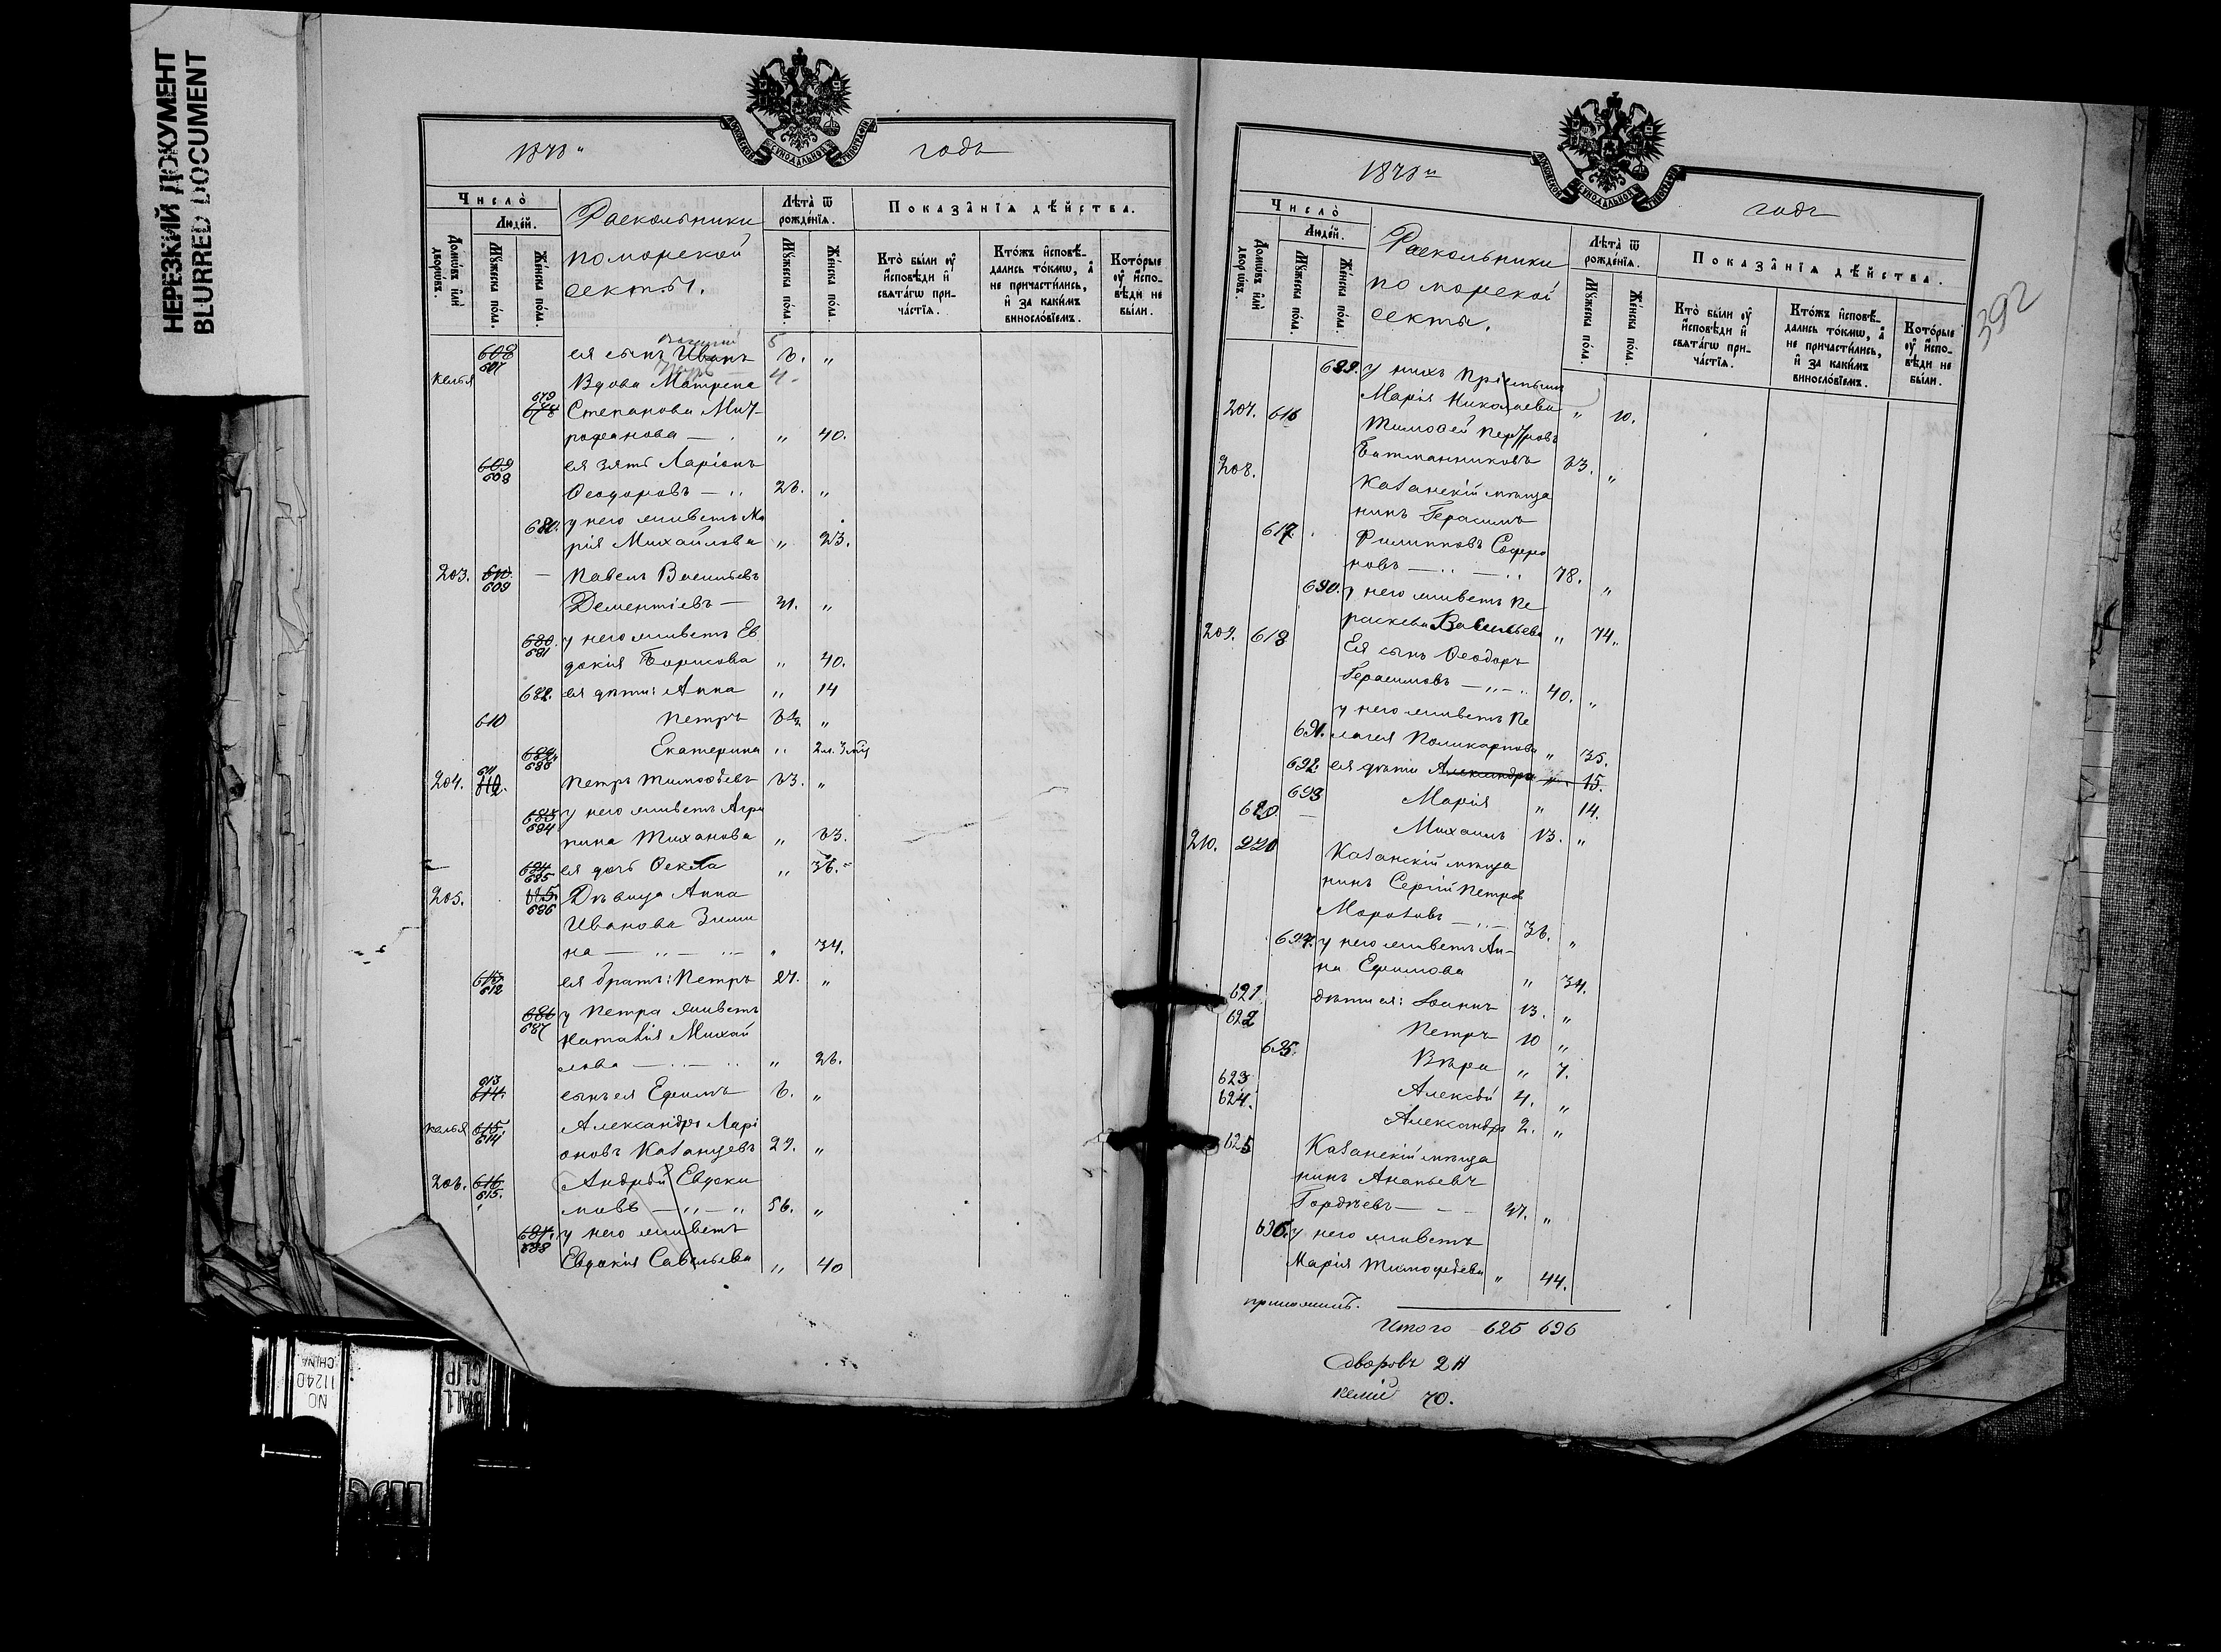 НЕРЕЗКИЙ ДОКУМЕНТ
BLURRED DOCUMENT
МОСКОВСКОЙ СѴНОДАЛЬНОЙ ТИПОГРАФІИ
годъ
Число̀
Люде́й.
Домѡ́въ и҆лѝ дворѡ́въ.
Мꙋ́жеска по́ла.
Же́нска по́ла.
Раскольники
поморской
секты.
Лѣта̀ ѿ рожде́нїѧ.
Мꙋ́жеска по́ла.
Же́нска по́ла.
Показа̑нїѧ дѣ́йства.
Кто̀ бы́ли оу҆ и҆́сповѣди и҆ свѧта́гѡ причⷭ҇тїѧ.
Кто́жъ и҆сповѣ́дались то́кмѡ, а҆ не причасти́лись, и҆ за каки́мъ виносло́вїемъ.
Кото́рые оу҆ и҆́сповѣди не бы́ли.
608 607 ея сынъ Иванъ 6. "
келья Вдова Матрена
679 678 Степанова Мит-
рофанова — " 40.
609 608 ея зять Ларіонъ
Ѳеодоровъ — 26. "
680. у него живетъ Ма
рія Михайлова " 23.
203. 610. 609 — Павелъ Васильевъ
Дементіевъ — 31. "
680. 681 у него живетъ Ев
докія Борисова " 40.
682. ея дѣти: Анна " 14
610 Петръ "
682. 683 Екатерина " 2 л. 3 мѣ
204. 611 612. Петръ Тимоѳѣевъ 63. "
683 684 у него живетъ Агри
пина Тиханова " 63.
684 685 ея дочь Ѳекла " 36.
205. 685. 686 Дѣвица Анна
Иванова Зими
на — " 34.
613 612 ея братъ: Петръ 27. "
686 687 у Петра живетъ
Наталія Михай
лова — " 26.
613 614. сынъ ея Ефимъ 6. "
келья 615. 614 Александръ Ларі
оновъ Казанцевъ 29. "
206. 616 615. Андрей Евдоки
мовъ — " — " 56. "
687. 688 у него живетъ
Евдокія Савельева " 40
МОСКОВСКОЙ СѴНОДАЛЬНОЙ ТИПОГРАФІИ
годъ
392
Число̀
Люде́й.
Домѡ́въ и҆лѝ дворѡ́въ.
Мꙋ́жеска по́ла.
Же́нска по́ла.
Раскольники
поморской
секты.
Лѣта̀ ѿ рожде́нїѧ.
Мꙋ́жеска по́ла.
Же́нска по́ла.
Показа̑нїѧ дѣ́йства.
Кто̀ бы́ли оу҆ и҆́сповѣди и҆ свѧта́гѡ причⷭ҇тїѧ.
Кто́жъ и҆сповѣ́дались то́кмѡ, а҆ не причасти́лись, и҆ за каки́мъ виносло́вїемъ.
Кото́рые оу҆ и҆́сповѣди не бы́ли.
689. у нихъ пріемышъ
Марія Николаева " 10.
207. 616 Тимоѳей
63. "
208. Казанскій мѣща
нинъ Герасимъ
617. Филипповъ Софро
новъ — 78. "
690. у него живетъ Пе
раскева Васильева " 74.
209. 618 Ея сынъ Ѳеодоръ
Герасимовъ — " — 40. "
у него живетъ Пе
691. лагея Поликарпова " 35.
692. ея дѣти Александра " 15.
693 Марія " 14.
Михаилъ 13. "
210. 220 Казанскій мѣща
нинъ Сергій Петров
Морозовъ — 36. "
694. у него живетъ Ан-
на Ефимова " 34.
621 дѣти ея: Іоаннъ 13. "
622 Петръ 10 "
695. Вѣра " 7.
623 Алексѣй 4. "
624. Александръ 2. "
625 Казанскій мѣща
нинъ Ананьевъ
Гордѣевъ — 37. "
696. у него живетъ
Марія Тимоѳѣева " 44.
Итого 625 696
дворовъ 211
келій 70.
NO 11240 CHINA
BALL CLIP